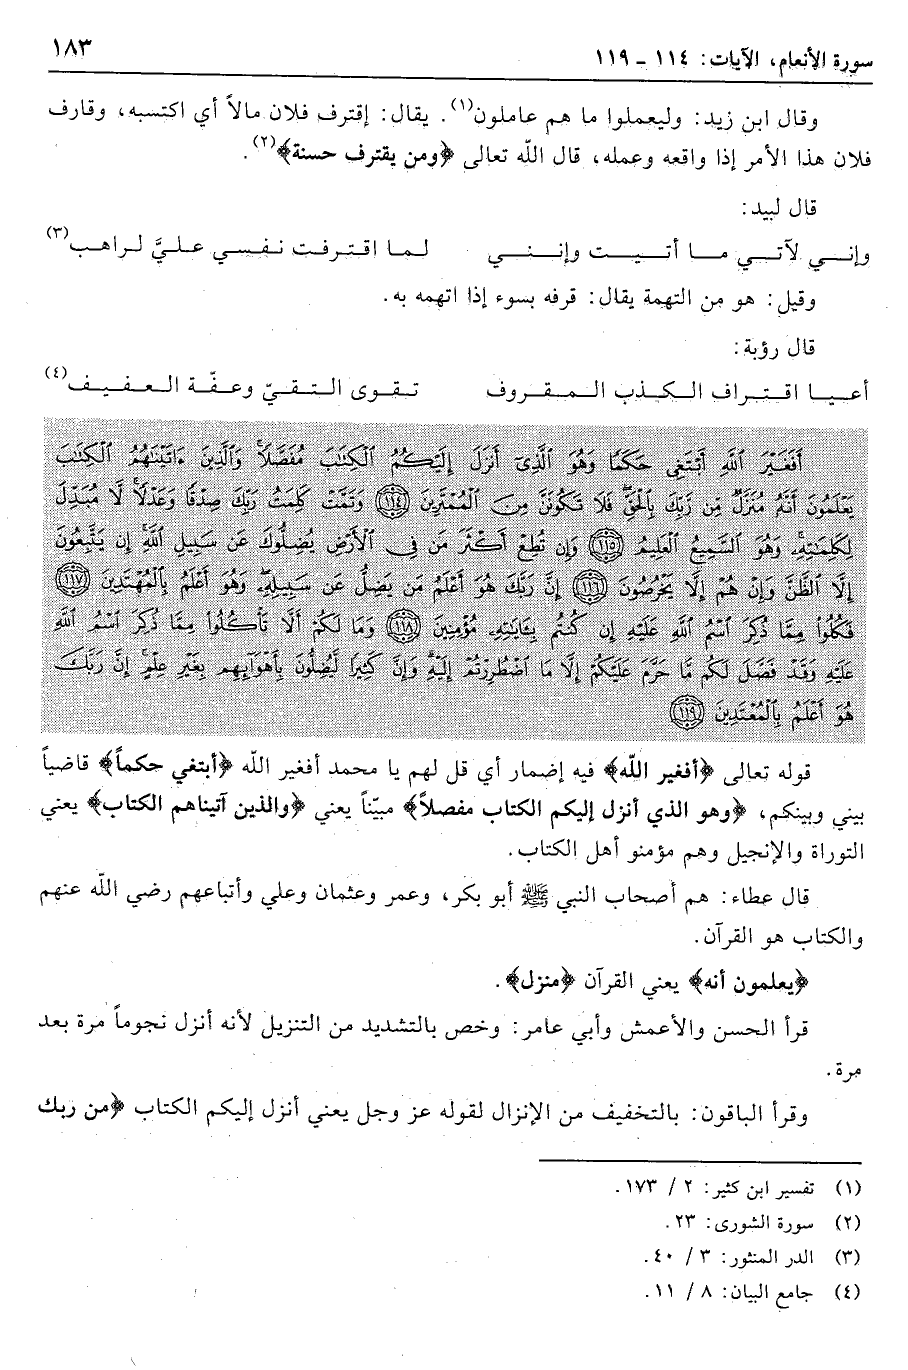 سورة الأنعام، الآيات: ١١٤ - ١١٩ ١٨٣
وقال ابن زيد: وليعملوا ما هم عاملون(١). يقال: إقترف فلان مالاً أي اكتسبه، وقارف
فلان هذا الأمر إذا واقعه وعمله، قال الله تعالى ﴿ومن يقترف حسنة﴾(٢).
قال لبيد:
وإنـــي لآتـــي مـــا أتـــيـــت وإنـــنـــي لـمـا اقـتـرفـت نـفـسـي عـلـيَّ لـراهـب(٣)
وقيل: هو من التهمة يقال: قرفه بسوء إذا اتهمه به.
قال رؤبة:
أعـيـا اقـتـراف الـكـذب الـمـقـروف تـقـوى الـتـقـيّ وعـفّـة الـعـفـيـف(٤)
أَفَغَيْرَ اللَّهِ أَبْتَغِي حَكَمًا وَهُوَ الَّذِي أَنزَلَ إِلَيْكُمُ الْكِتَابَ مُفَصَّلًا وَالَّذِينَ ءَاتَيْنَاهُمُ الْكِتَابَ
يَعْلَمُونَ أَنَّهُ مُنَزَّلٌ مِّن رَّبِّكَ بِالْحَقِّ فَلَا تَكُونَنَّ مِنَ الْمُمْتَرِينَ ﴿١١٤﴾ وَتَمَّتْ كَلِمَتُ رَبِّكَ صِدْقًا وَعَدْلًا لَّا مُبَدِّلَ
لِكَلِمَاتِهِ وَهُوَ السَّمِيعُ الْعَلِيمُ ﴿١١٥﴾ وَإِن تُطِعْ أَكْثَرَ مَن فِي الْأَرْضِ يُضِلُّوكَ عَن سَبِيلِ اللَّهِ إِن يَتَّبِعُونَ
إِلَّا الظَّنَّ وَإِنْ هُمْ إِلَّا يَخْرُصُونَ ﴿١١٦﴾ إِنَّ رَبَّكَ هُوَ أَعْلَمُ مَن يَضِلُّ عَن سَبِيلِهِ وَهُوَ أَعْلَمُ بِالْمُهْتَدِينَ ﴿١١٧﴾
فَكُلُوا مِمَّا ذُكِرَ اسْمُ اللَّهِ عَلَيْهِ إِن كُنتُم بِآيَاتِهِ مُؤْمِنِينَ ﴿١١٨﴾ وَمَا لَكُمْ أَلَّا تَأْكُلُوا مِمَّا ذُكِرَ اسْمُ اللَّهِ
عَلَيْهِ وَقَدْ فَصَّلَ لَكُم مَّا حَرَّمَ عَلَيْكُمْ إِلَّا مَا اضْطُرِرْتُمْ إِلَيْهِ وَإِنَّ كَثِيرًا لَّيُضِلُّونَ بِأَهْوَائِهِم بِغَيْرِ عِلْمٍ إِنَّ رَبَّكَ
هُوَ أَعْلَمُ بِالْمُعْتَدِينَ ﴿١١٩﴾
قوله تعالى ﴿أفغير الله﴾ فيه إضمار أي قل لهم يا محمد أفغير الله ﴿أبتغي حكماً﴾ قاضياً
بيني وبينكم، ﴿وهو الذي أنزل إليكم الكتاب مفصلاً﴾ مبيّناً يعني ﴿والذين آتيناهم الكتاب﴾ يعني
التوراة والإنجيل وهم مؤمنو أهل الكتاب.
قال عطاء: هم أصحاب النبي ﷺ أبو بكر، وعمر وعثمان وعلي وأتباعهم رضي الله عنهم
والكتاب هو القرآن.
﴿يعلمون أنه﴾ يعني القرآن ﴿منزل﴾.
قرأ الحسن والأعمش وأبي عامر: وخص بالتشديد من التنزيل لأنه أنزل نجوماً مرة بعد
مرة.
وقرأ الباقون: بالتخفيف من الإنزال لقوله عز وجل يعني أنزل إليكم الكتاب ﴿من ربك
(١) تفسير ابن كثير: ٢ / ١٧٣.
(٢) سورة الشورى: ٢٣.
(٣) الدر المنثور: ٣ / ٤٠.
(٤) جامع البيان: ٨ / ١١.